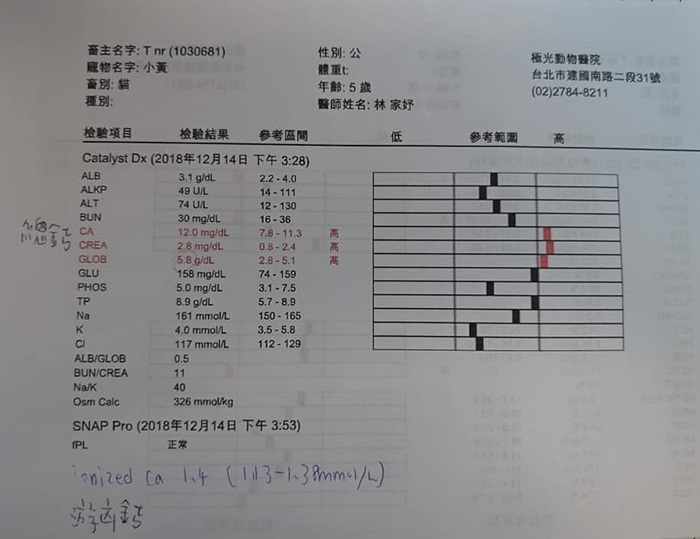 畜主名字: T nr (1030681) 性別: 公 極光動物醫院
寵物名字: 小黃 體重t: 台北市建國南路二段31號
畜別: 貓 年齡: 5 歲 (02)2784-8211
種別: 醫師姓名: 林 家妤
檢驗項目 檢驗結果 參考區間 低 參考範圍 高
Catalyst Dx (2018年12月14日 下午 3:28)
ALB 3.1 g/dL 2.2 - 4.0
ALKP 49 U/L 14 - 111
ALT 74 U/L 12 - 130
BUN 30 mg/dL 16 - 36
CA 12.0 mg/dL 7.8 - 11.3 高
CREA 2.8 mg/dL 0.8 - 2.4 高
GLOB 5.8 g/dL 2.8 - 5.1 高
GLU 158 mg/dL 74 - 159
PHOS 5.0 mg/dL 3.1 - 7.5
TP 8.9 g/dL 5.7 - 8.9
Na 161 mmol/L 150 - 165
K 4.0 mmol/L 3.5 - 5.8
Cl 117 mmol/L 112 - 129
ALB/GLOB 0.5
BUN/CREA 11
Na/K 40
Osm Calc 326 mmol/kg
SNAP Pro (2018年12月14日 下午 3:53)
fPL 正常
ionized Ca 1.4 (1.13-1.38mmol/L)